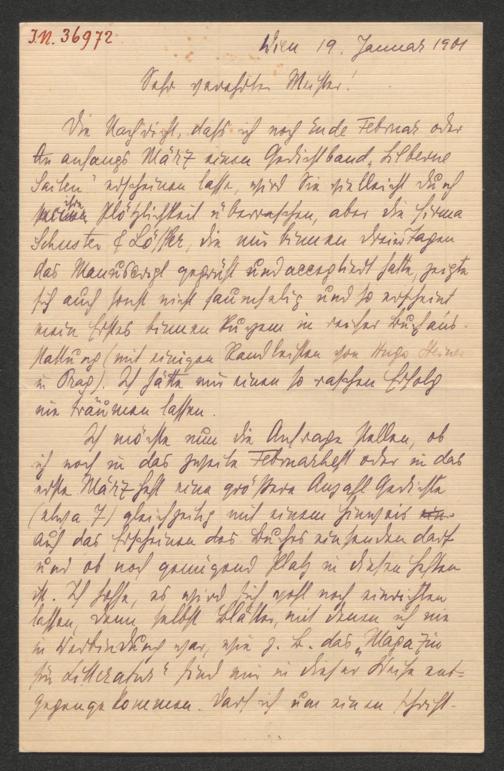 I.N. 36972
Wien 19. Januar 1901
Sehr verehrter Meister!
Die Nachricht, dass ich noch Ende Februar oder
anfangs März einen Gedichtband „Silberne
Saiten" erscheinen lasse, wird Sie vielleicht durch
ihre Plötzlichkeit überraschen, aber die Firma
Schuster & Löffler, die mir binnen drei Tagen
das Manuscript geprüft und acceptiert hatte, zeigte
sich auch sonst nicht saumselig und so erscheint
mein Erstes binnen Kurzem in reicher Buchaus-
stattung (mit einigen Randleisten von Hugo Steiner
in Prag). Ich hätte mir einen so raschen Erfolg
nie träumen lassen.
Ich möchte nun die Anfrage stellen, ob
ich noch in das zweite Februarheft oder in das
erste Märzheft eine grössere Anzahl Gedichte
(etwa 7) gleichzeitig mit einem Hinweis
auf das Erscheinen des Buches einsenden darf
und ob noch genügend Platz in diesen Heften
ist. Ich hoffe, es wird sich wohl noch einrichten
lassen, denn selbst Blätter, mit denen ich nie
in Verbindung war, wie z. B. das „Magazin
für Litteratur" sind mir in dieser Weise ent-
gegengekommen. Darf ich um einen schrift-